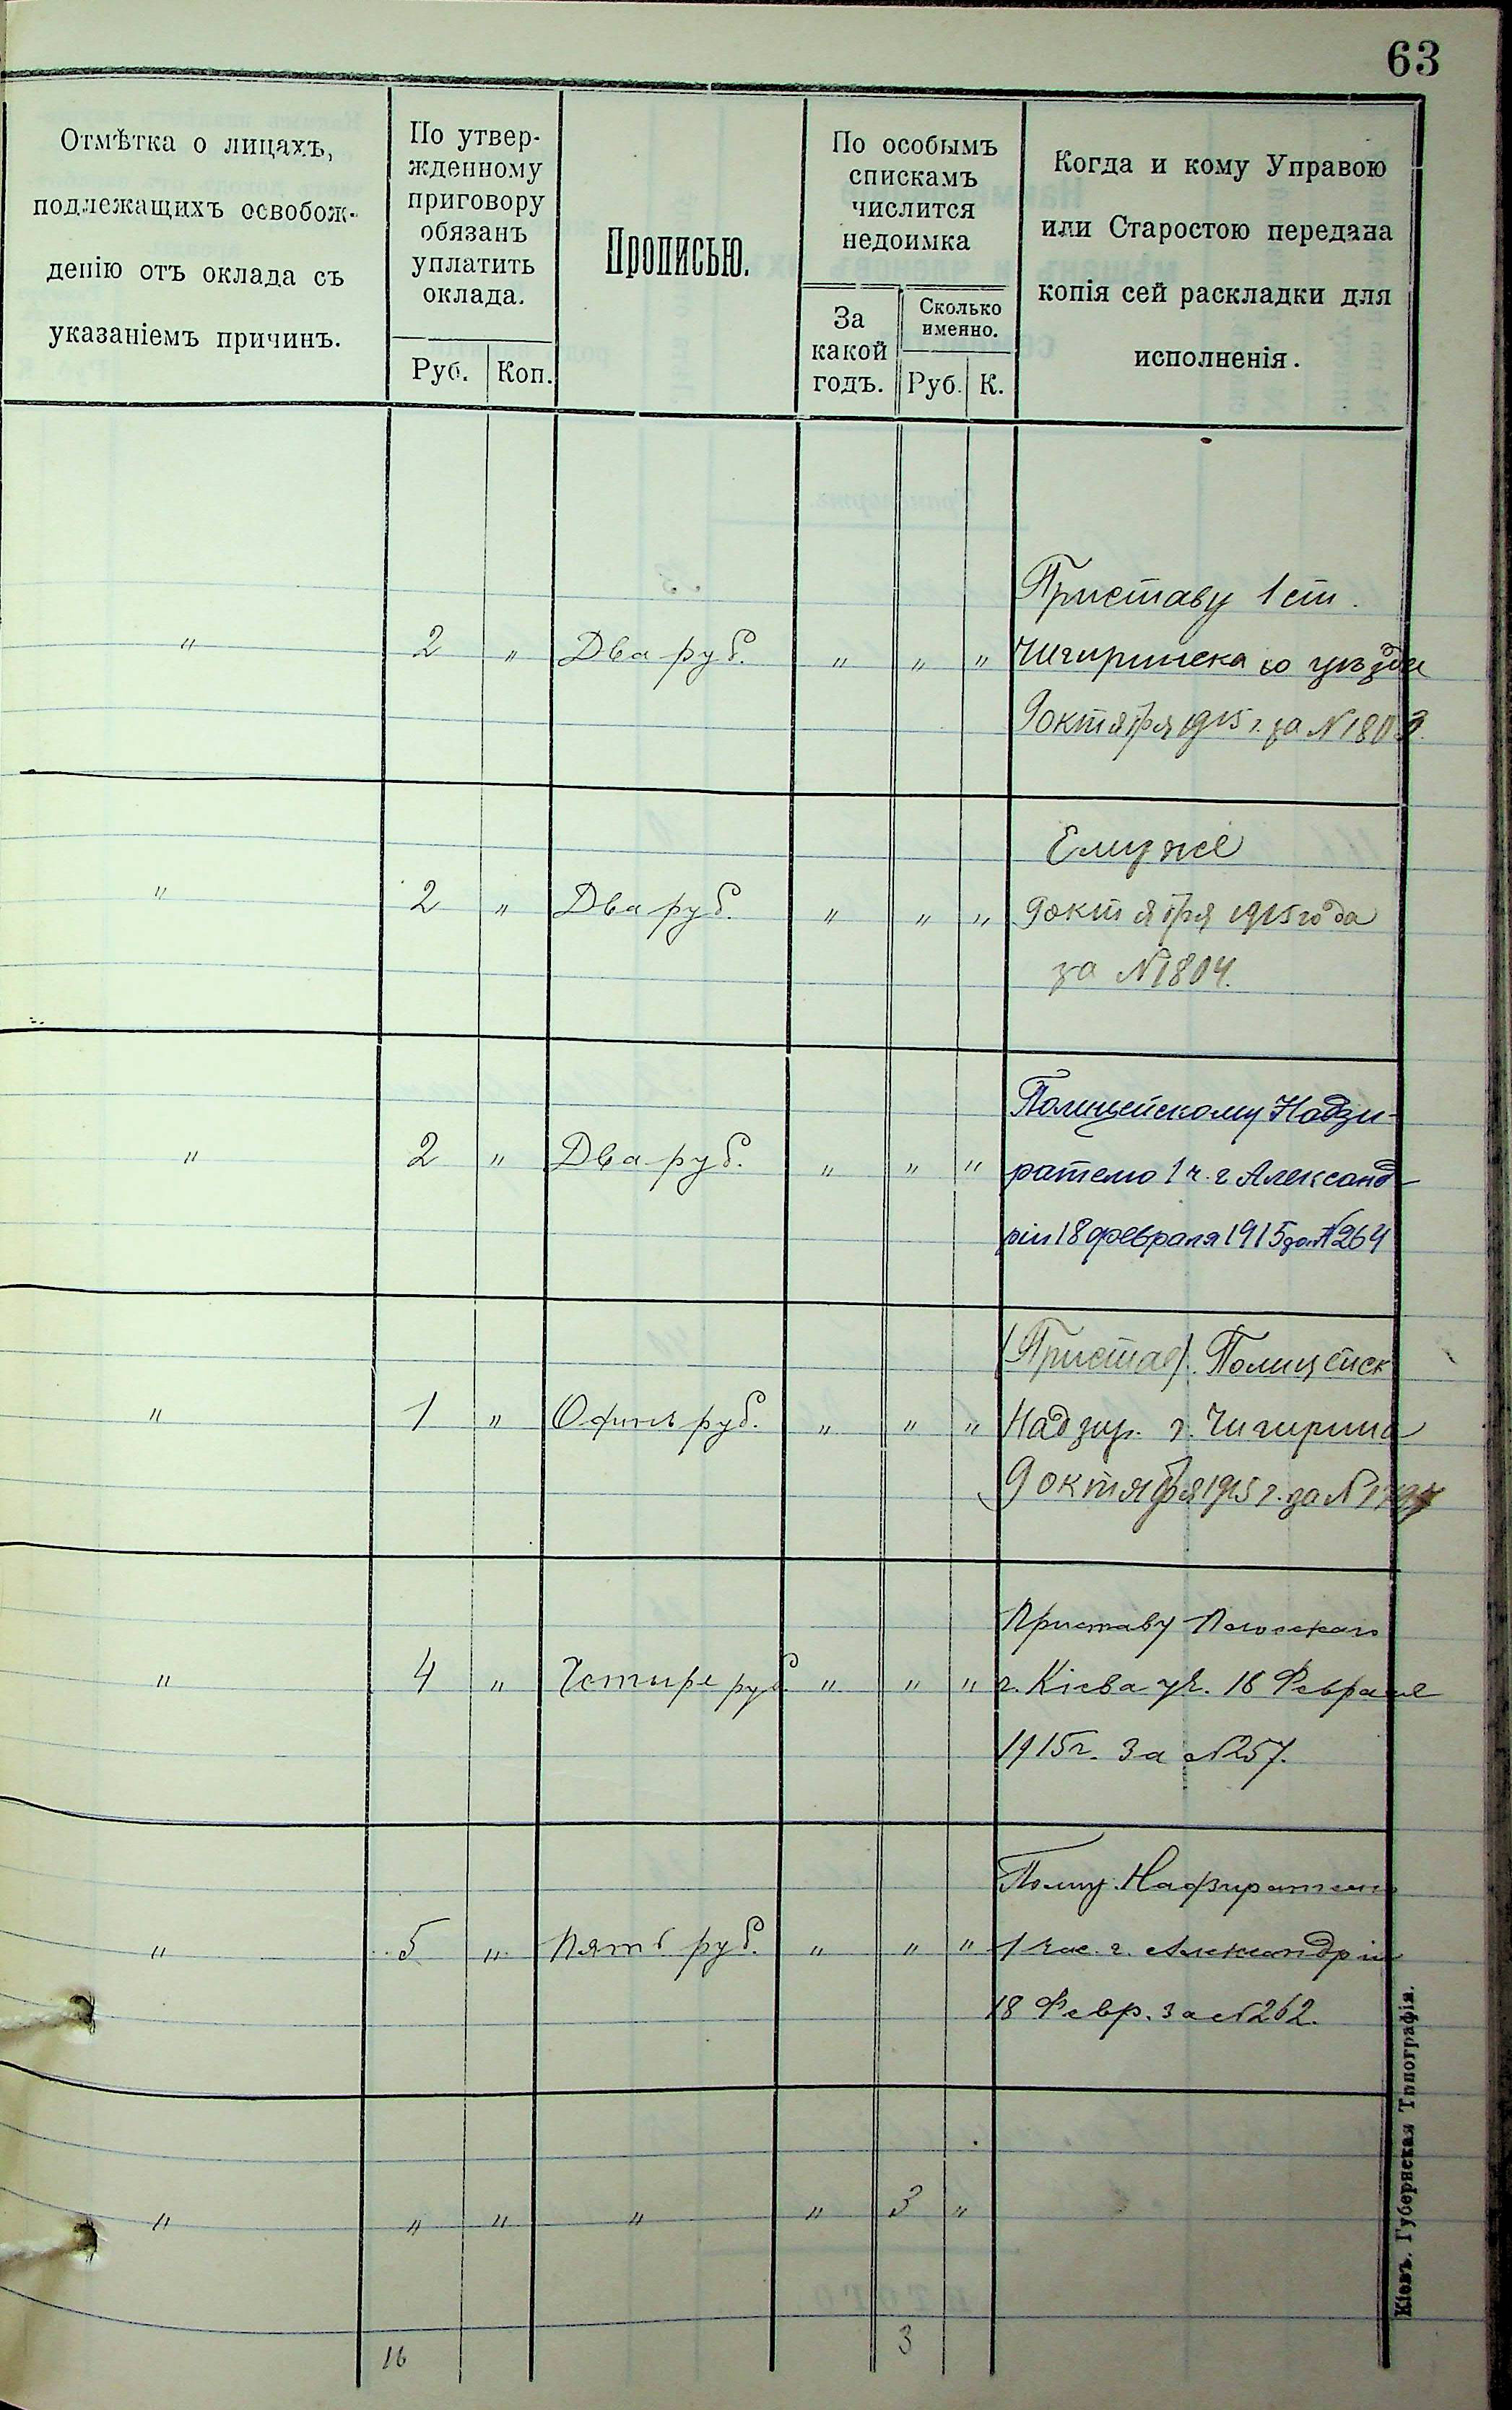 63
Отмѣтка о лицахъ,
подлежащихъ освобож-
денію отъ оклада съ
указаніемъ причинъ.
По утвер-
жденному
приговору
обязанъ
уплатить
оклада.
Руб.
Коп.
Прописью.
По особымъ
спискамъ
числится
недоимка
За
какой
годъ.
Сколько
именно.
Руб.
К.
Когда и кому Управою
или Старостою передана
копія сей раскладки для
исполненія.
Приставу 1 ст.
" 2 " Два руб. " " " Чигиринскаго уѣзда
9 октября 1915 г. за №1803.
Ему же
" 2 " Два руб. " " " 9 октября 1915 года
за №1804.
Полицейскому Надзи-
" 2 " Два руб. " " " рателю 1 ч. г Александ
ріи 18 февраля 1915 за №264
(Пристав). Полицейск
" 1 " Одинъ руб. " " " Надзир. г. Чигирина
9 октября 1915 г. за №
Приставу
" 4 " Четыре руб. " " " г. Кіева уч. 18 Февраля
1915 г. За №257.
Полиц. Надзирателю
" 5 " Пять руб. " " " 1 час. г. Александріи
18 Февр. за №262.
" " " " " 3 "
16 3
Кіевъ. Губернская Типографія.